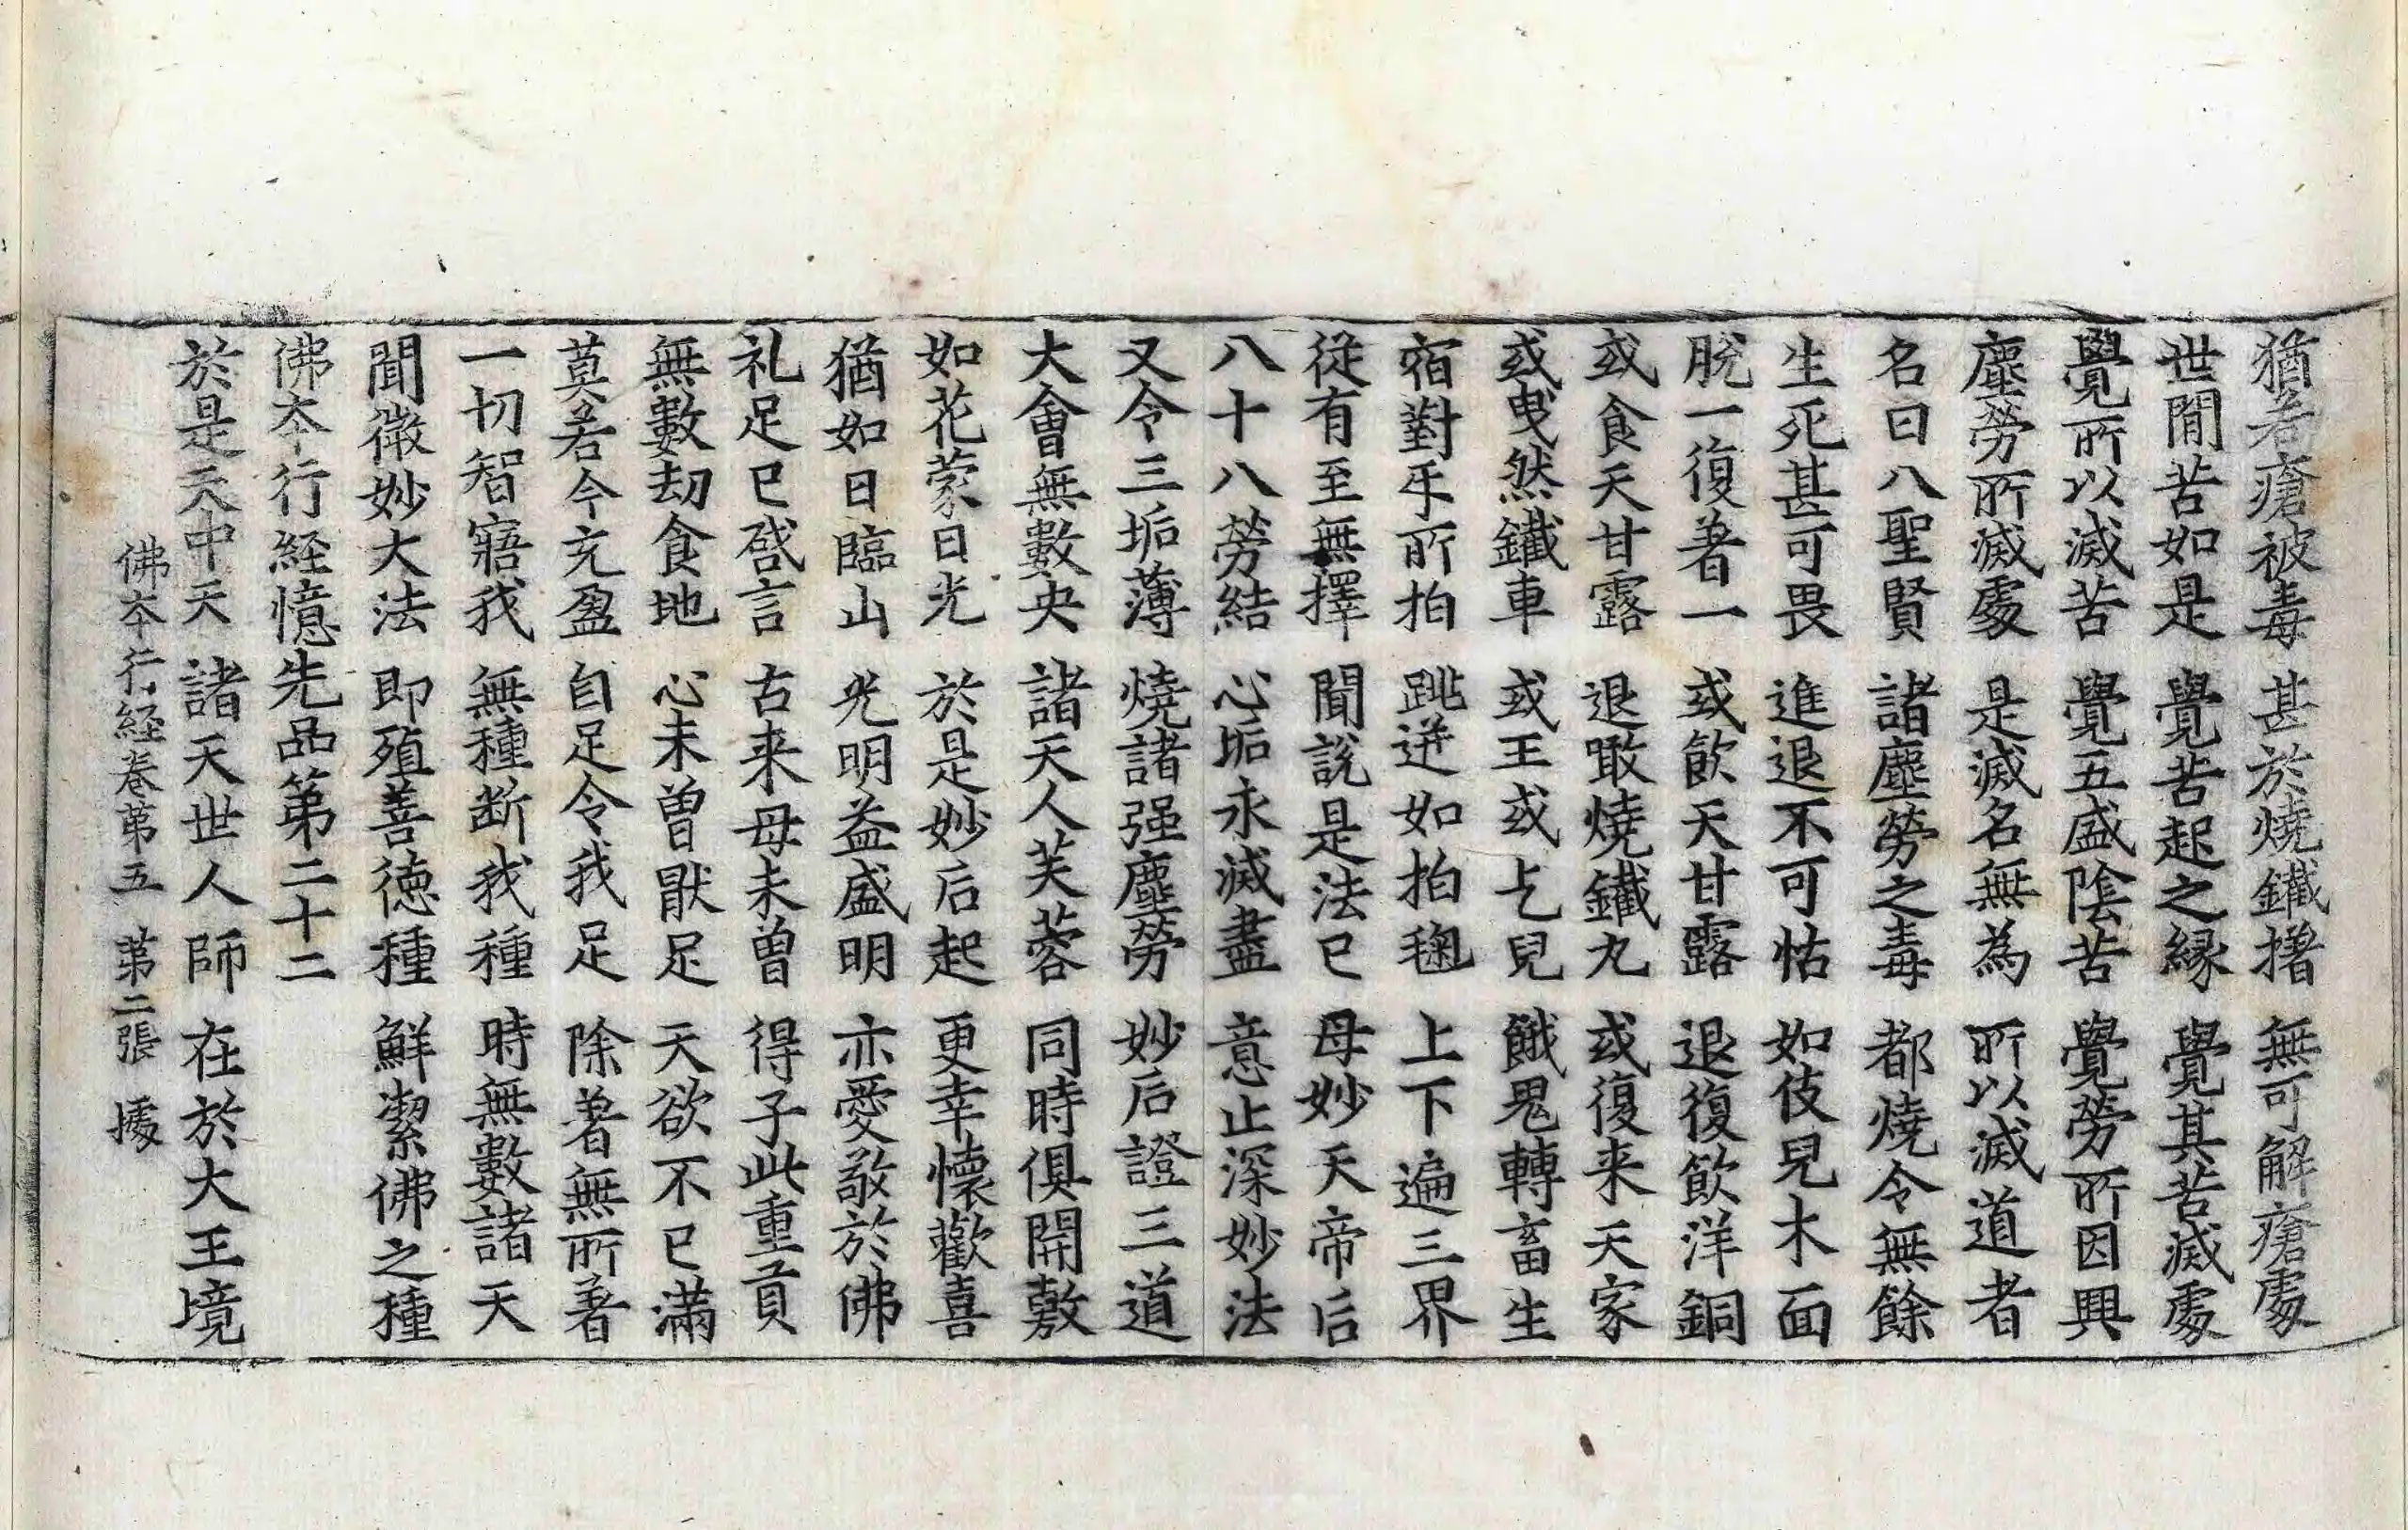 猶若瘡被毒 甚於燒鐵撍 無可解瘡處
世閒苦如是 覺苦起之緣 覺其苦滅處
覺所以滅苦 覺五盛陰苦 覺勞所因興
塵勞所滅處 是滅名無為 所以滅道者
名曰八聖賢 諸塵勞之毒 都燒令無餘
生死甚可畏 進退不可怙 如伎兒木面
脫一復著一 或飲天甘露 退復飲洋銅
或食天甘露 退噉燒鐵丸 或復来天家
或曳然鐵車 或王或乞兒 餓鬼轉畜生
宿對手所拍 跳迸如拍毱 上下遍三界
從有至無擇 聞說是法已 母妙天帝后
八十八勞結 心垢永滅盡 意止深妙法
又令三垢薄 燒諸强塵勞 妙后證三道
大會無數央 諸天人芙蓉 同時俱開敷
如花蒙日光 於是妙后起 更幸懷歡喜
猶如日臨山 光明益盛明 亦愛敬於佛
礼足已啓言 古来母未曾 得子此重貢
無數劫食地 心未曾猒足 天欲不已滿
莫若今充盈 自足令我足 除著無所著
一切智寤我 無種断我種 時無數諸天
聞微妙大法 即殖善德種 鮮潔佛之種
佛夲行経憶先品第二十二
於是天中天 諸天世人師 在於大王境
佛夲行経卷第五 第二張 㨿